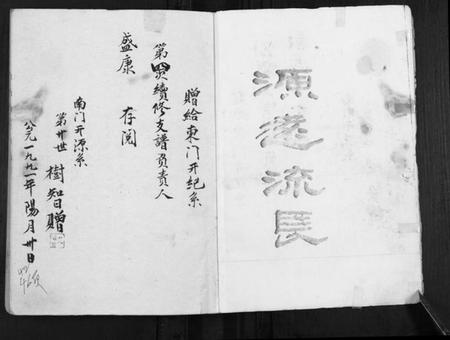 源遠流長
贈給東门开纪系
第四次續修支譜负责人
盛康 存阅
南门开源系
第卅世 樹知贈
公元一九九一年陽月卅日